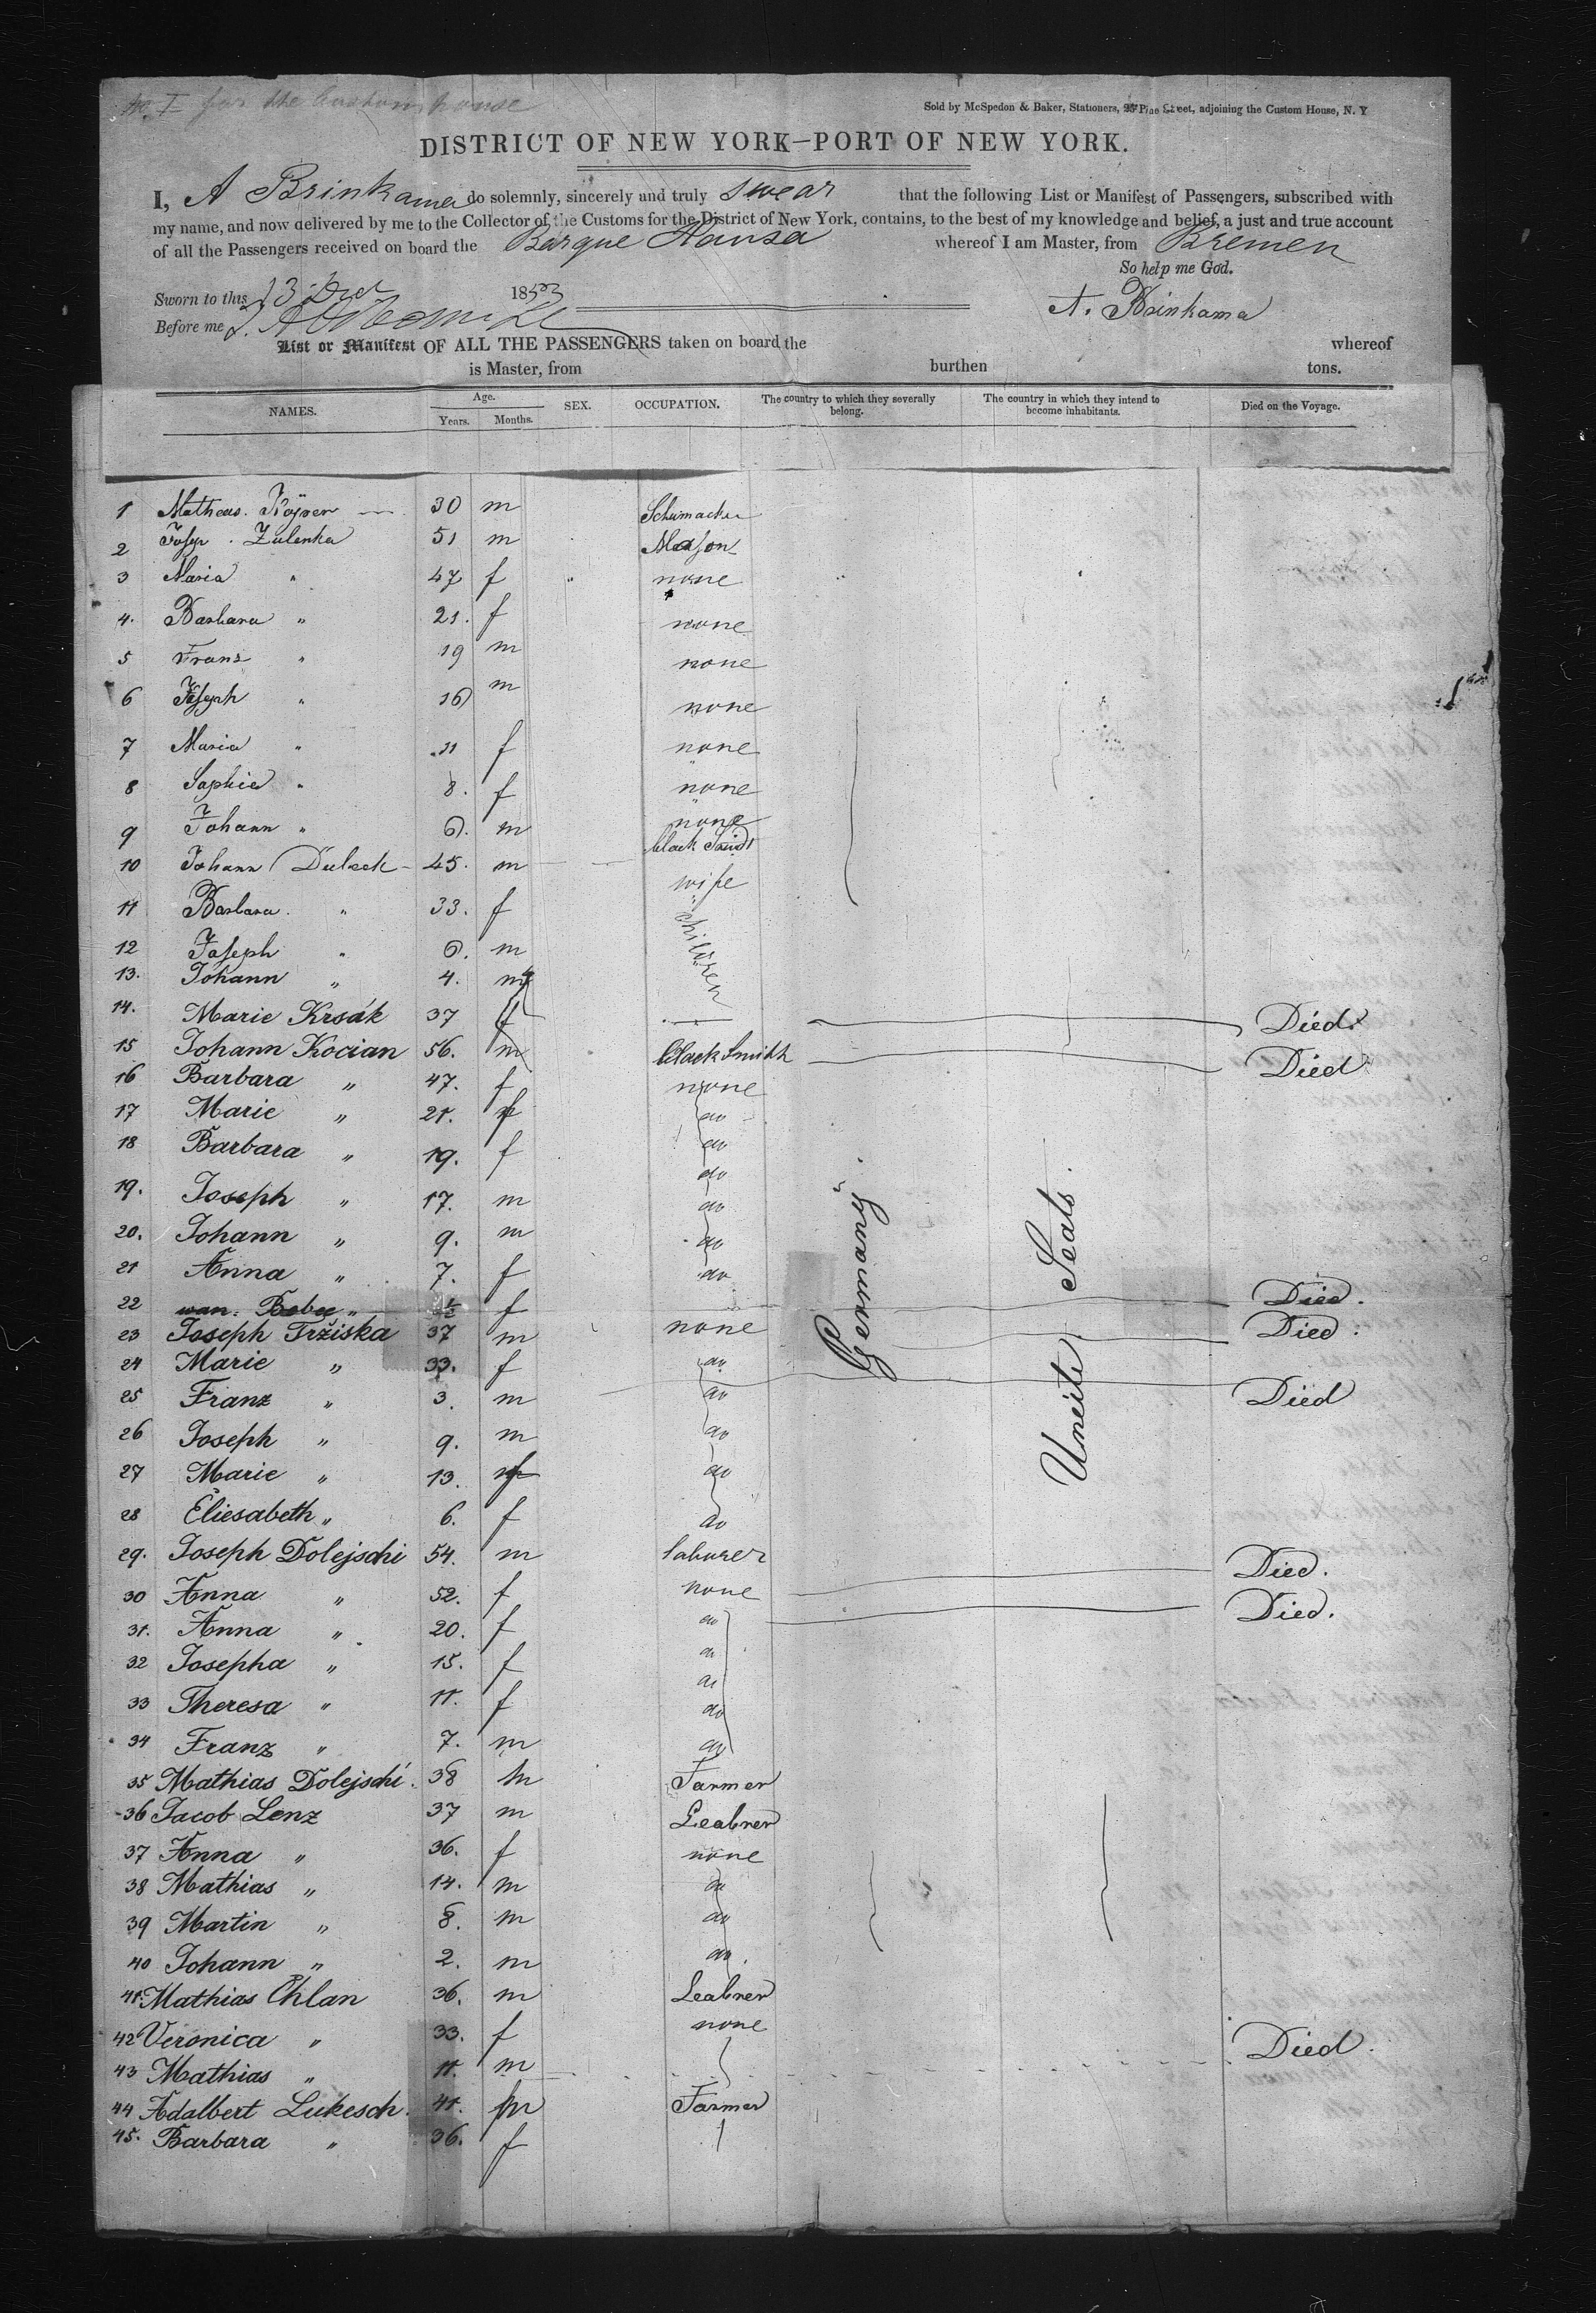 for the Custom house
Sold by McSpedon & Baker, Stationers, 25 Pine Street, adjoining the Custom House, N. Y
DISTRICT OF NEW YORK—PORT OF NEW YORK.
I, A Brinkama do solemnly, sincerely and truly swear that the following List or Manifest of Passengers, subscribed with
my name, and now delivered by me to the Collector of the Customs for the District of New York, contains, to the best of my knowledge and belief, a just and true account
of all the Passengers received on board the Barque Hansa whereof I am Master, from Bremen
So help me God.
Sworn to this 13 Dec 1853
A. Brinkama
Before me
List or Manifest OF ALL THE PASSENGERS taken on board the whereof
is Master, from burthen tons.
NAMES. Age. Years. Months. SEX. OCCUPATION. The country to which they severally belong. The country in which they intend to become inhabitants. Died on the Voyage.
1 Matheus. 30 m Schumacher
2 Josep. Zulenka 51 m Mason
3 Maria " 47 f none
4. Barbara " 21. f none
5 Franz " 19 m none
6 Joseph " 16 m none
7 Maria " 11 f none
8 Sophia " 8. f none
9 Johann " 6. m none
10 Johann Duleck 45. m black Smidt
11 Barbara. " 33. f wife
12 Joseph " 6. m children
13. Johann " 4. m
14. Marie Krsák 37 f Died.
15 Johann Kocian 56. m black Smith Died
16 Barbara " 47. f none
17 Marie " 21. f do
18 Barbara " 19. f do
do
19. Joseph " 17. m do
20. Johann " 9. m do
21 Anna " 7. f do
22 Bebee " 1/2 f Died.
23 Joseph Tržiska 37 m none Died.
24 Marie " 33. f do
25 Franz " 3. m do Died
26 Joseph " 9. m do
27 Marie " 13. f do
28 Eliesabeth " 6. f do
Germany.
Uneite Seats.
29. Joseph Dolejschi 54. m laborer Died.
30 Anna " 52. f none Died.
31. Anna " 20. f do
32 Josepha " 15. f do
do
33 Theresa " 11. f do
34 Franz " 7. m do
35 Mathias Dolejschi. 38 m Farmer
36 Jacob Lenz 37 m Leabrer
37 Anna " 36. f none
38 Mathias " 14. m do
39 Martin " 8. m do
40 Johann " 2. m do.
41. Mathias Chlan 36. m Leabrer
42 Veronica " 33. f none
43 Mathias " 11. m Died.
44 Adalbert Lukesch. 41. m Farmer
45. Barbara " 36. f